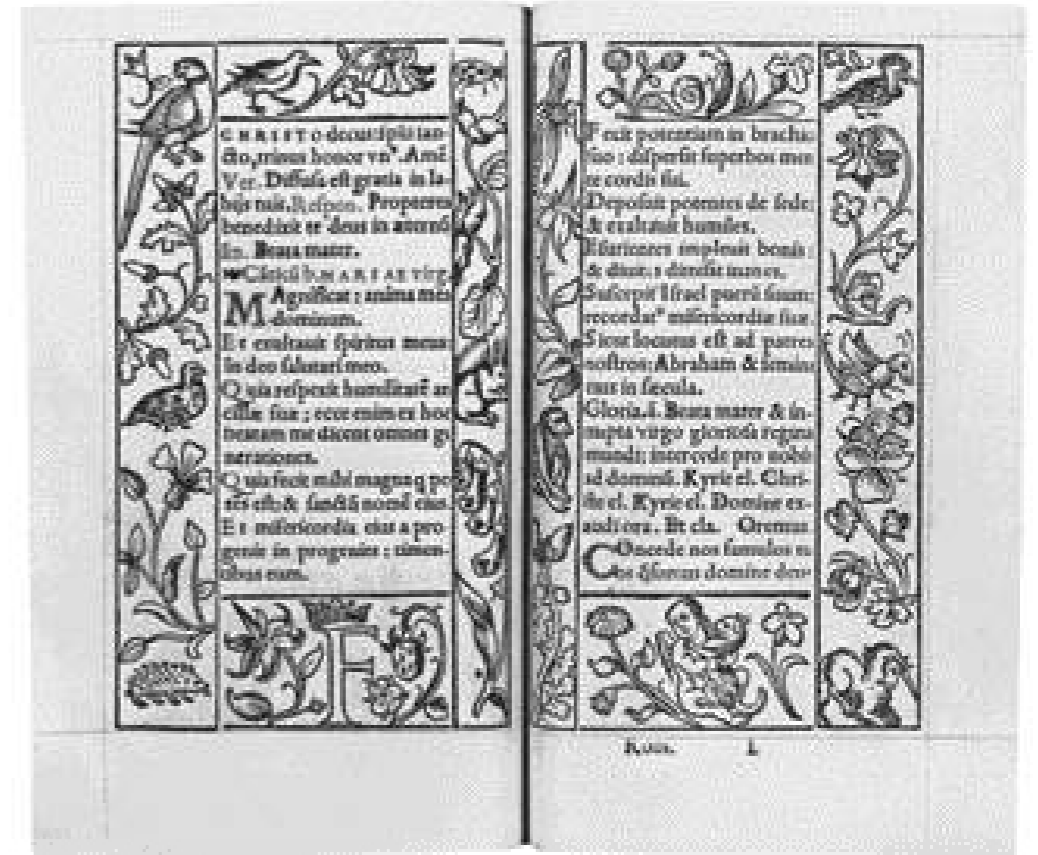 CHRISTO decus: spũi san-
cto, trinus honor vnꝰ. Amẽ.
Ver. Diffusa est gratia in la-
bijs tuis. Respon. Propterea
benedixit te deus in aeternũ
In. Beata mater.
Cãticũ b. MARIAE virg.
MAgnificat: anima mea
dominum.
Et exultauit spiritus meus:
In deo salutari meo.
Quia respexit humilitatẽ an
cillæ suæ: ecce enim ex hoc
beatam me dicent omnes ge
nerationes.
Quia fecit mihi magna q po
tẽs est: & sanctũ nomẽ eius.
Et misericordia eius a pro
genie in progenies: timen-
tibus eum.
F
Fecit potentiam in brachio
suo: dispersit superbos men
te cordis sui.
Deposuit potentes de sede:
& exaltauit humiles.
Esurientes impleuit bonis:
& diuites dimisit inanes.
Suscepit Israel puerũ suum:
recordatꝰ misericordiæ suæ.
Sicut locutus est ad patres
nostros: Abraham & semini
eius in sæcula.
Gloria. ã. Beata mater & in-
nupta virgo gloriosa regina
mundi: intercede pro nobis
ad dominũ. Kyrie el. Chri-
ste el. Kyrie el. Domine ex-
audi ora. Et cla. Oremus
COncede nos famulos tu
os q̃sumus domine deus
Rom. I